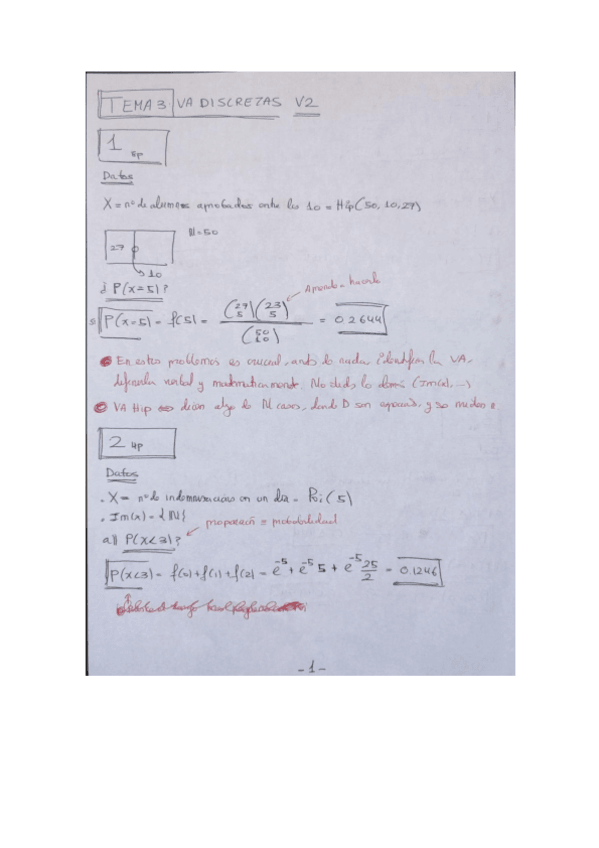 TEMA 3 VA DISCRETAS V2
1 5p
Datos
X = nº de alumnos aprobados entre los 10 = Hip(50, 10, 27)
27 N=50
10
¿P(x=5)?
Aprueba = hacerlo
P(x=5) = f(5) = (27 5)(23 5) / (50 10) = 0.2644
En estos problemas es crucial, antes de nada, identificar la VA,
definirla verbal y matemáticamente. No olvides lo demás (Im(x), ...)
VA Hip dicen algo de N casos, donde D son y se
2 4p
Datos
. X = nº de indemnizaciones en un día = Poi(5)
. Im(x) = {N}
proporción = probabilidad
a) P(x<3)?
P(x<3) = f(0)+f(1)+f(2) = e^-5 + e^-5 5 + e^-5 25/2 = 0.1246
-1-